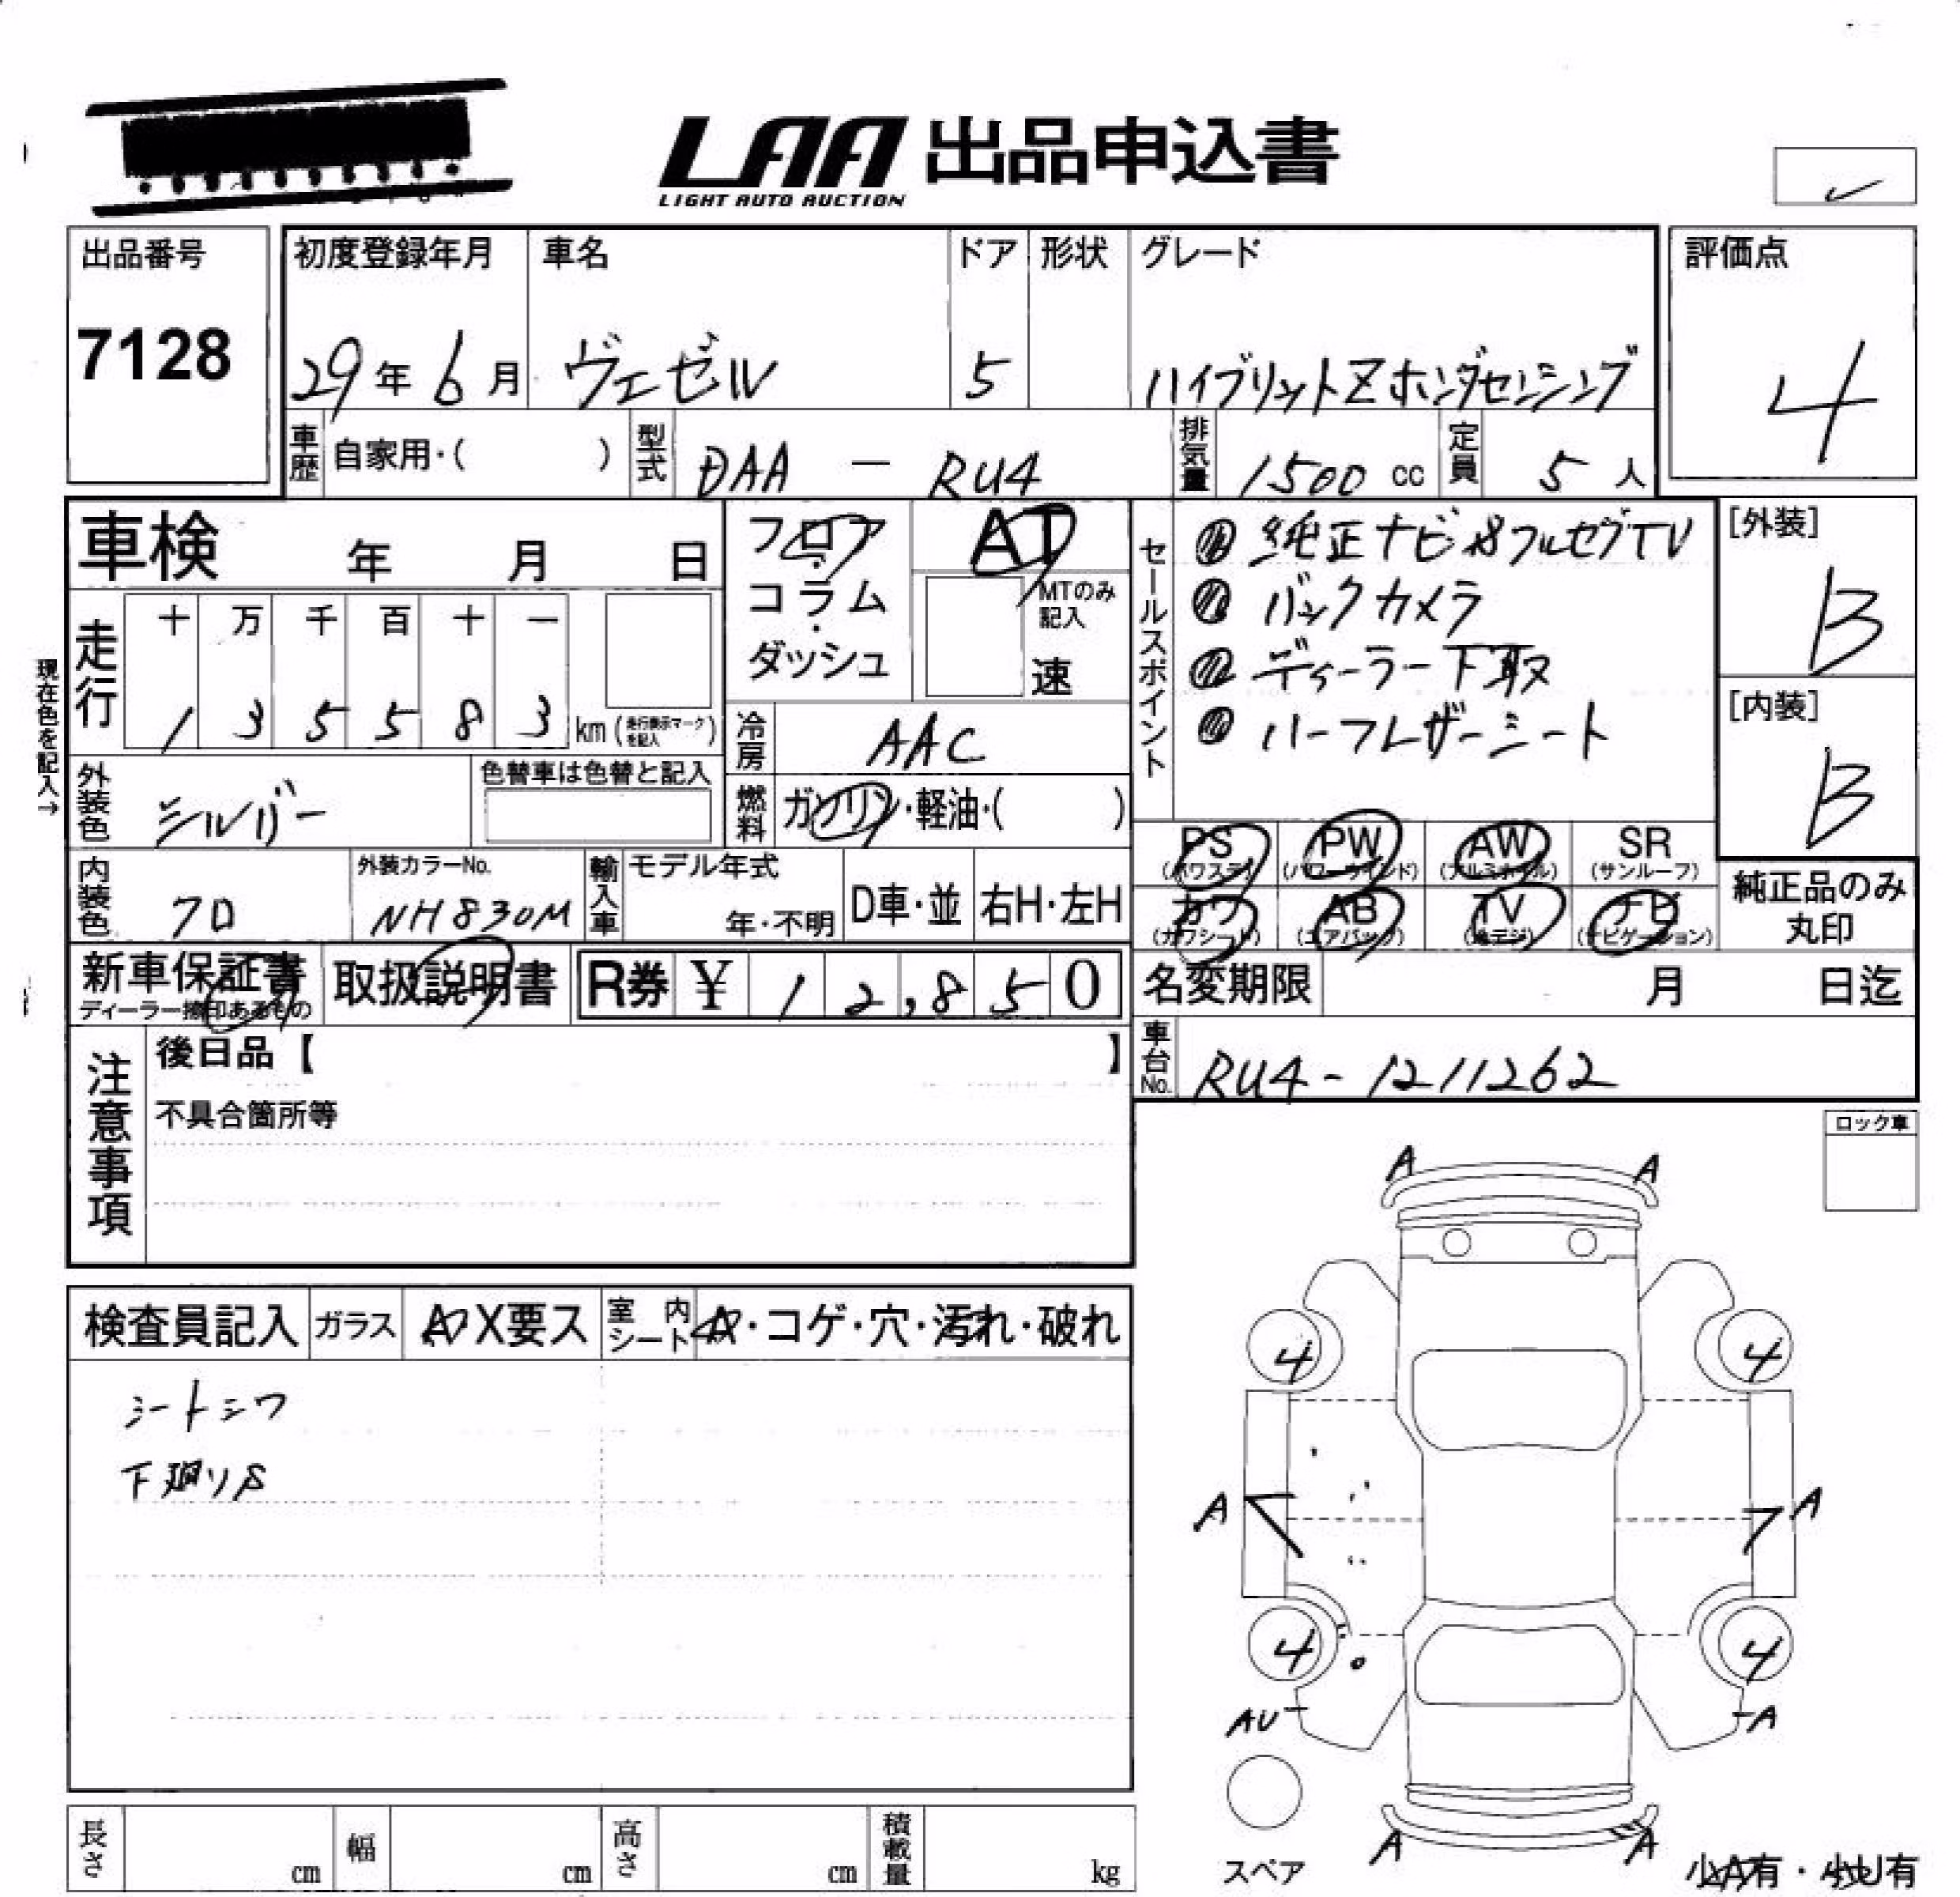 LAA 出品申込書
LIGHT AUTO AUCTION
出品番号
7128
初度登録年月 車名 ドア 形状 グレード
29年 6月 ヴェゼル 5 ハイブリットZホンダセンシング
評価点
4
車歴 自家用・( ) 型式 DAA - RU4 排気量 1500 cc 定員 5 人
車検 年 月 日
フロア・コラム・ダッシュ
AT
MTのみ記入
速
セールスポイント
純正ナビ&フルセグTV
バックカメラ
ディーラー下取
ハーフレザーシート
[外装]
B
[内装]
B
現在色を記入→
走行 十 万 千 百 十 一
1 3 5 5 8 3 km (走行表示マークを記入)
冷房 AAC
外装色 シルバー 色替車は色替と記入
燃料 ガソリン・軽油・( )
PS PW AW SR
(パワステ) (パワーウインド) (アルミホイル) (サンルーフ)
カワ AB TV ナビ
(カワシート) (エアバック) (地デジ) (ナビゲーション)
純正品のみ
丸印
内装色 クロ 外装カラーNo. NH830M 輸入車 モデル年式 年・不明 D車・並 右H・左H
新車保証書 取扱説明書 R券 ¥ 12,850
ディーラー捺印あるもの
名変期限 月 日迄
車台No. RU4-1211262
注意事項
後日品【 】
不具合箇所等
ロック車
A A
検査員記入 ガラス A X要ス 室内シート A・コゲ・穴・汚れ・破れ
シートシワ
下廻りS
4 4
A A
4 4
AU A
スペア
A A
小A有・小U有
長さ cm 幅 cm 高さ cm 積載量 kg